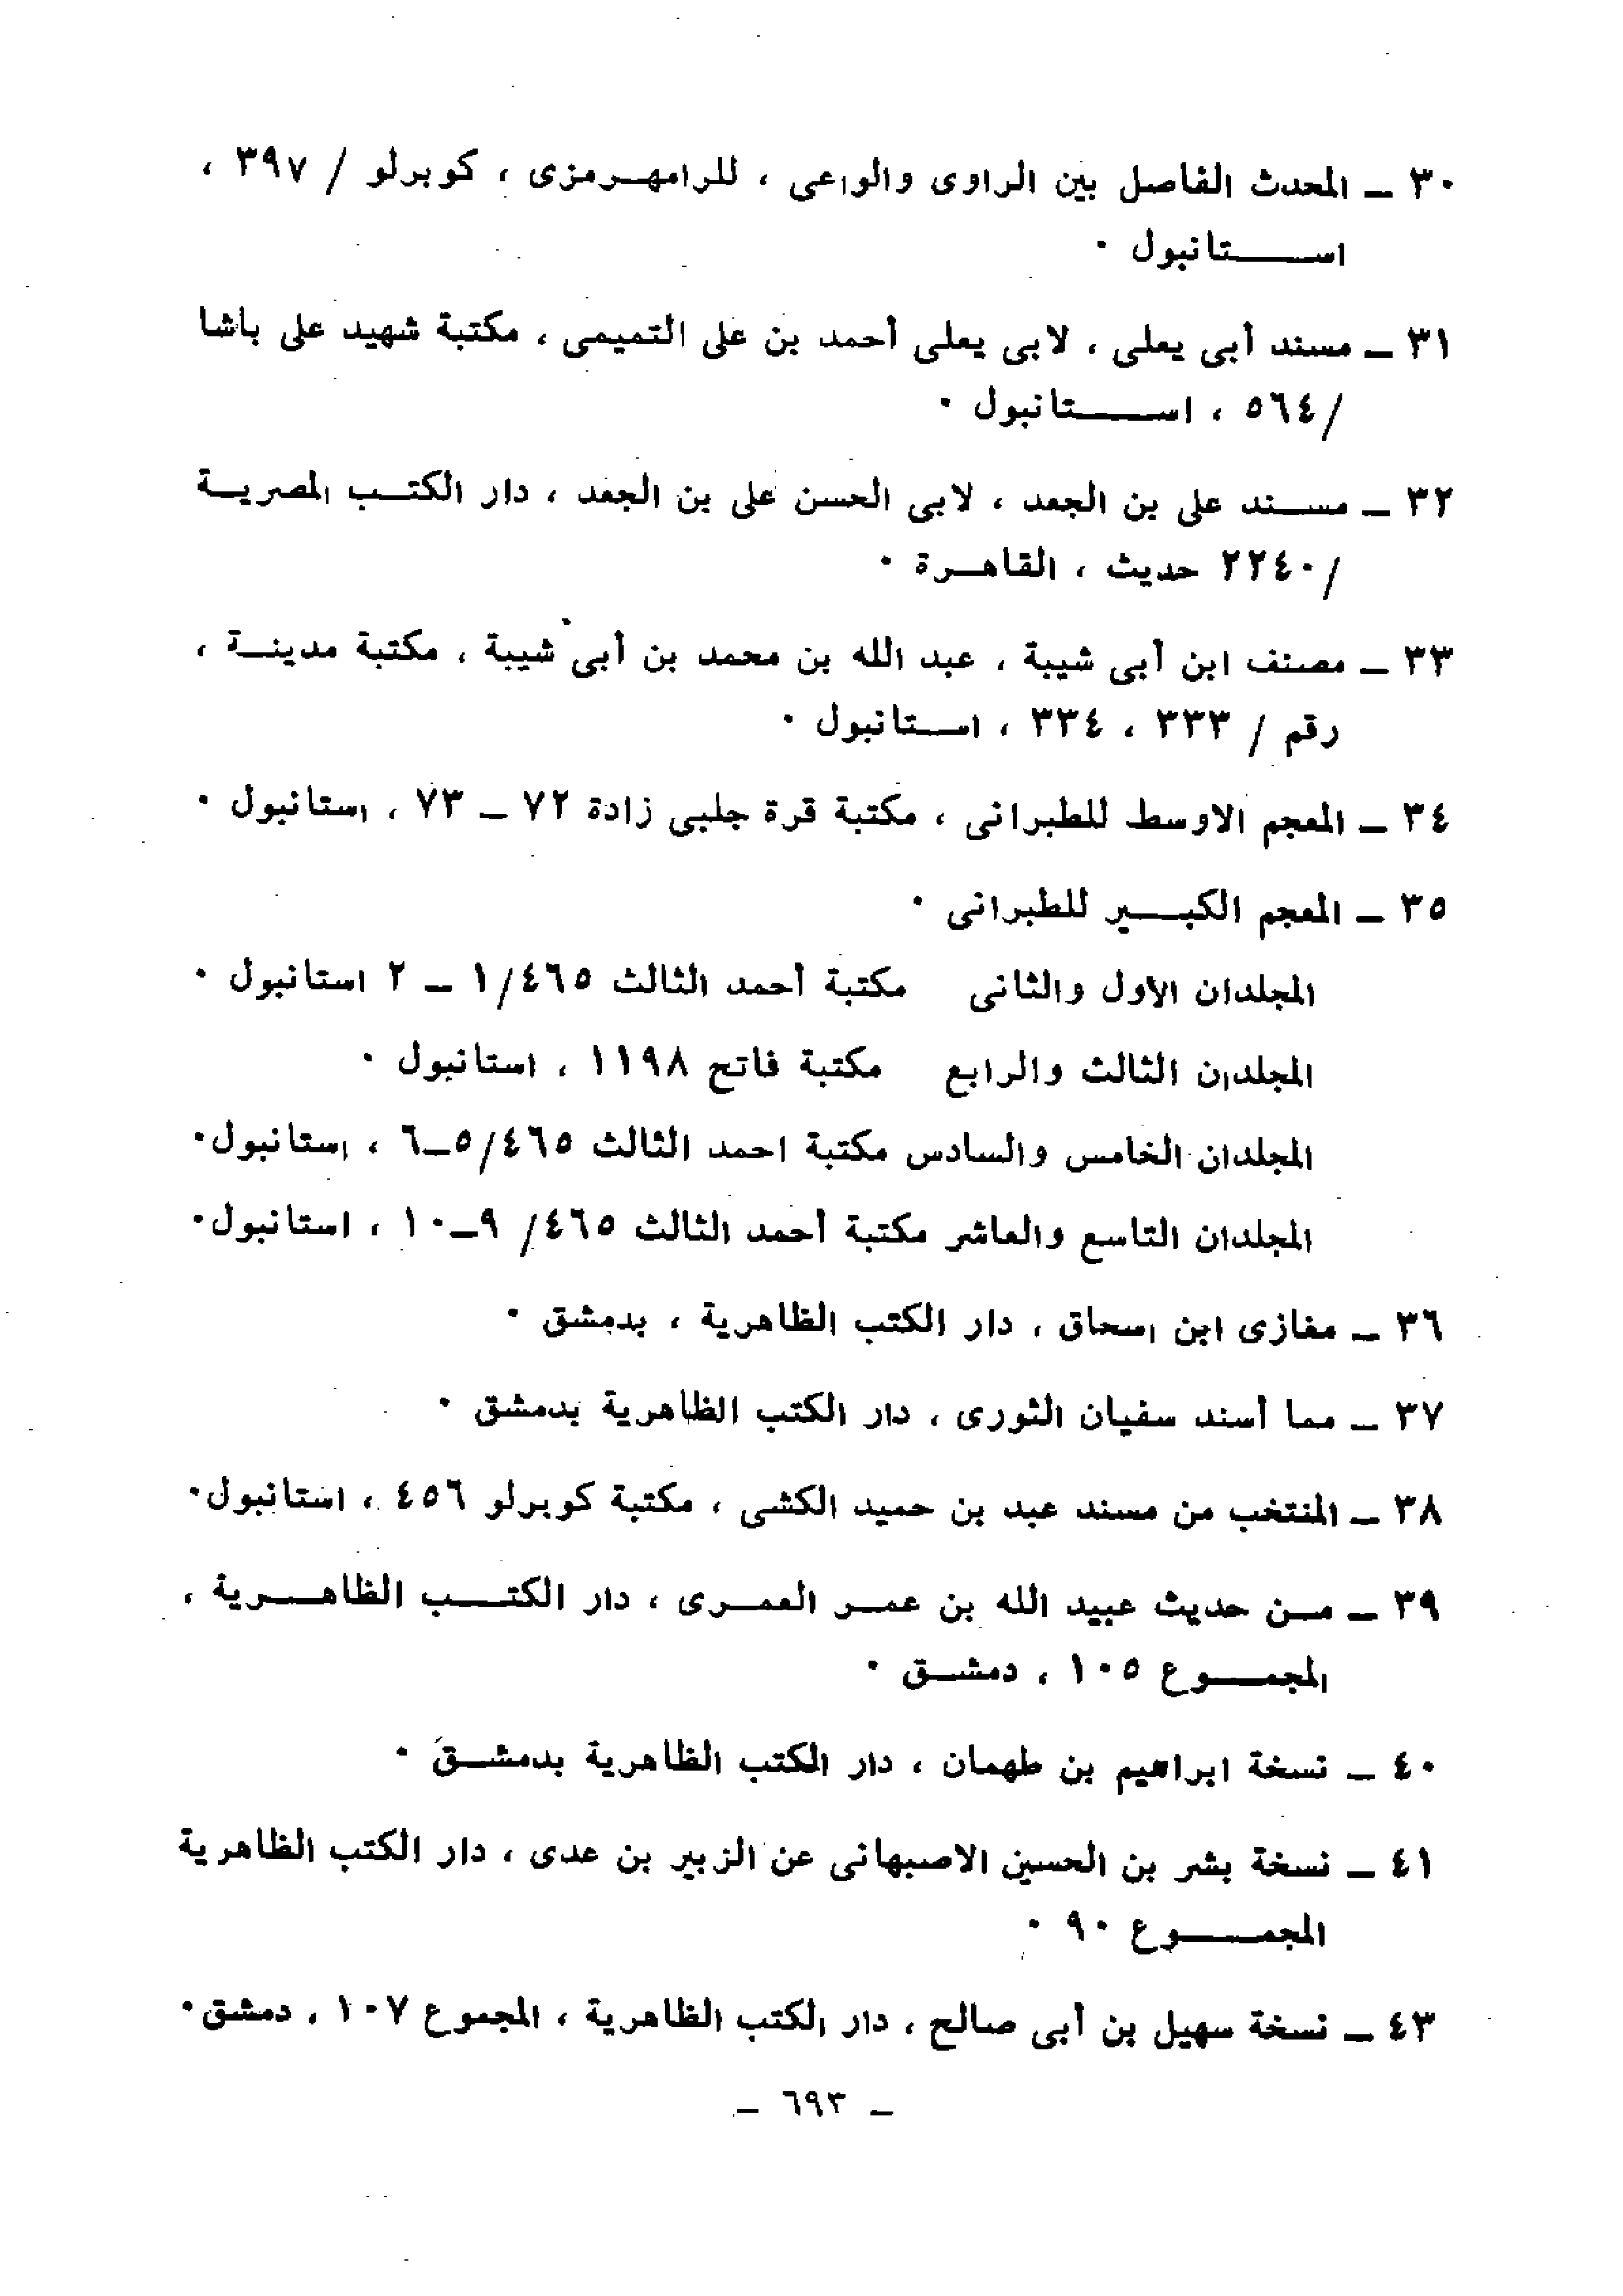 ٣٠ ـ المحدث الفاصل بين الراوى والواعى ، للرامهرمزى ، كوبرلو / ٣٩٧ ،
استانبول ٠
٣١ ـ مسند أبى يعلى ، لابى يعلى أحمد بن على التميمى ، مكتبة شهيد على باشا
/٥٦٤ ، استانبول ٠
٣٢ ـ مسند على بن الجعد ، لابى الحسن على بن الجعد ، دار الكتب المصرية
/٢٢٤٠ حديث ، القاهرة ٠
٣٣ ـ مصنف ابن أبى شيبة ، عبد الله بن محمد بن أبى شيبة ، مكتبة مدينة ،
رقم / ٣٣٣ ، ٣٣٤ ، استانبول ٠
٣٤ ـ المعجم الاوسط للطبرانى ، مكتبة قرة جلبى زادة ٧٢ ـ ٧٣ ، استانبول ٠
٣٥ ـ المعجم الكبير للطبرانى ٠
المجلدان الاول والثانى مكتبة أحمد الثالث ١/٤٦٥ ـ ٢ استانبول ٠
المجلدان الثالث والرابع مكتبة فاتح ١١٩٨ ، استانبول ٠
المجلدان الخامس والسادس مكتبة احمد الثالث ٥/٤٦٥ـ٦ ، استانبول٠
المجلدان التاسع والعاشر مكتبة أحمد الثالث ٤٦٥/ ٩ـ١٠ ، استانبول٠
٣٦ ـ مغازى ابن اسحاق ، دار الكتب الظاهرية ، بدمشق ٠
٣٧ ـ مما أسند سفيان الثورى ، دار الكتب الظاهرية بدمشق ٠
٣٨ ـ المنتخب من مسند عبد بن حميد الكشى ، مكتبة كوبرلو ٤٥٦ ، استانبول٠
٣٩ ـ من حديث عبيد الله بن عمر العمرى ، دار الكتب الظاهرية ،
المجموع ١٠٥ ، دمشق ٠
٤٠ ـ نسخة ابراهيم بن طهمان ، دار الكتب الظاهرية بدمشق ٠
٤١ ـ نسخة بشر بن الحسين الاصبهانى عن الزبير بن عدى ، دار الكتب الظاهرية
المجموع ٩٠ ٠
٤٣ ـ نسخة سهيل بن أبى صالح ، دار الكتب الظاهرية ، المجموع ١٠٧ ، دمشق٠
ـ ٦٩٣ ـ